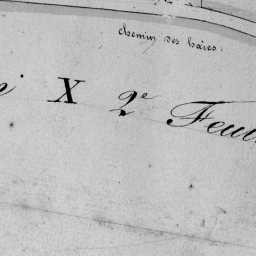 chemin des haies.
X 2e Feuil